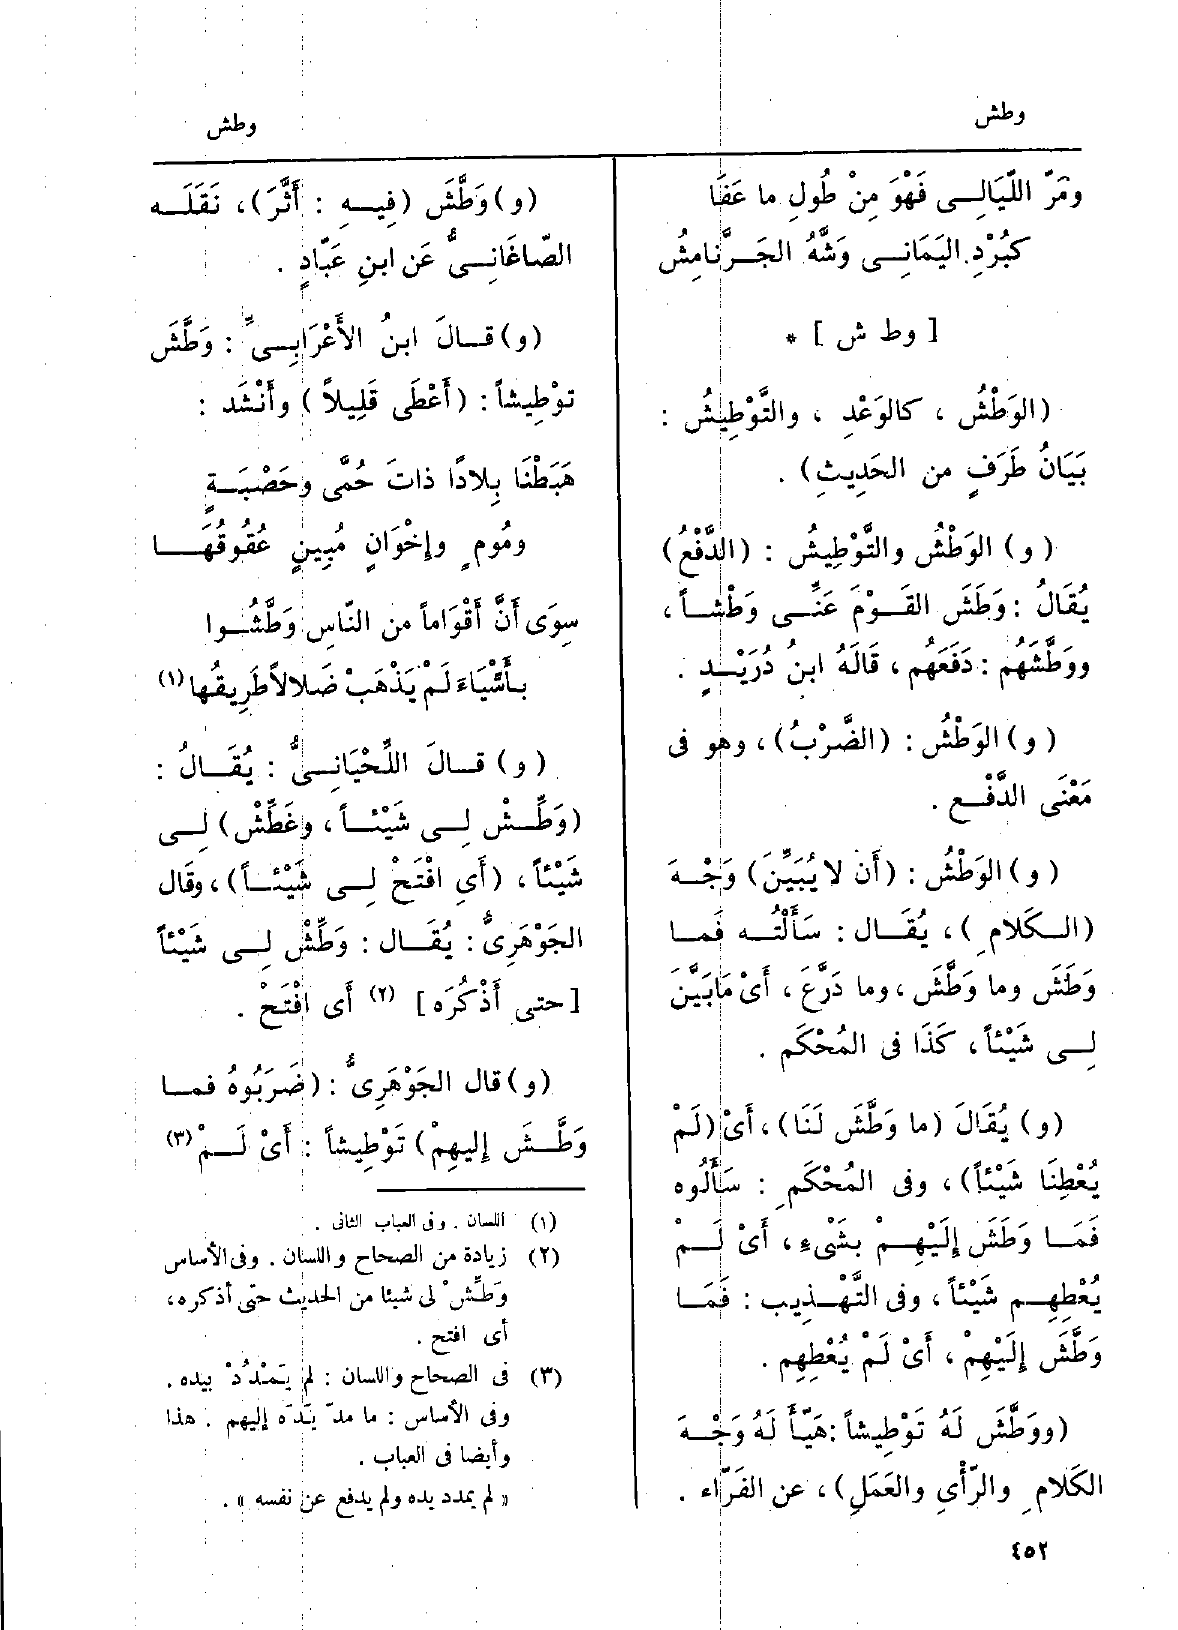 وطش
وطش
ومَرّ اللَّيَالِـى فَهْوَ مِنْ طُولِ ما عَفَا
كبُرْدِ اليَمَانِـى وَشَّهُ الجَـرَّنامِشُ
[ وط ش ] *
(الوَطْشُ ، كالوَعْدِ ، والتَّوْطِيشُ :
بَيَانُ طَرَفٍ من الحَدِيثِ) .
(و) الوَطْشُ والتَّوْطِيشُ : (الدَّفْعُ)
يُقَالُ : وَطَشَ القَـوْمَ عَنِّـى وَطْشـاً ،
ووَطَّشَهُم : دَفَعَهُم ، قَالَهُ ابنُ دُرَيْـدٍ .
(و) الوَطْشُ : (الضَّرْبُ) ، وهو فى
مَعْنَى الدَّفْـع .
(و) الوَطْشُ : (أَن لا يُبَيِّنَ) وَجْـهَ
(الـكَلامِ) ، يُقَـال : سَأَلْتُـه فَمـا
وَطَشَ وما وَطَّشَ ، وما دَرَّعَ ، أَىْ مَابَيَّنَ
لِـى شَيْئاً ، كَذَا فى المُحْكَم .
(و) يُقَالَ (ما وَطَّشَ لَنَا) ، أَىْ (لَمْ
يُعْطِنَا شَيْئاً) ، وفى المُحْكَمِ : سَأَلُوه
فَمَـا وَطَشَ إِلَيْهِـمْ بشَىْءٍ ، أَىْ لَـمْ
يُعْطِهِـم شَيْئاً ، وفى التَّهْـذِيب : فَمَـا
وَطَّشَ إِلَيْهِمْ ، أَىْ لَمْ يُعْطِهِم .
(ووَطَّشَ لَهُ تَوْطِيشاً : هَيَّأَ لَهُ وَجْـهَ
الكَلامِ والرَّأْىِ والعَمَلِ) ، عن الفَرّاء .
٤٥٢
(و) وَطَّشَ (فِيـهِ : أَثَّرَ) ، نَقَلَـه
الصّاغَانِـىُّ عَن ابنِ عَبّادٍ .
(و) قـالَ ابنُ الأَعْرَابِـىِّ : وَطَّشَ
توْطِيشاً : (أَعْطَى قَلِيلاً) وأَنْشَد :
هَبَطْنَا بِلادًا ذاتَ حُمَّى وحَصْبَـةٍ
ومُومٍ وإِخْوَانٍ مُبِينٍ عُقُوقُهَـا
سِوَى أَنَّ أَقْوَاماً من النّاسِ وَطَّشُـوا
بـأَشْيَاءَ لَمْ يَذْهَبْ ضَلالاً طَرِيقُها (١)
(و) قـالَ اللِّحْيَانِـىُّ : يُقَـالُ :
(وَطِّـشْ لِـى شَيْئـاً ، وغَطِّشْ) لِـى
شَيْئاً ، (أَىِ افْتَحْ لِـى شَيْئـاً) ، وقال
الجَوْهَرِىُّ : يُقَـال : وَطِّشْ لِـى شَيْئاً
[حتى أَذْكُرَه] (٢) أَى افْتَحْ .
(و) قال الجَوْهَرِىُّ : (ضَرَبُوهُ فمـا
وَطَّـشَ إِليهِمْ) تَوْطِيشاً : أَىْ لَـمْ (٣)
(١) اللسان . وفى العباب الثانى .
(٢) زيادة من الصحاح واللسان . وفى الأساس
وَطِّشْ لى شيئا من الحديث حتى أذكره ،
أى افتح .
(٣) فى الصحاح واللسان : لم يَمْدُدْ بيده .
وفى الأساس : ما مدّ يَدَه إليهم . هذا
وأيضا فى العباب .
« لم يمدد يده ولم يدفع عن نفسه » .